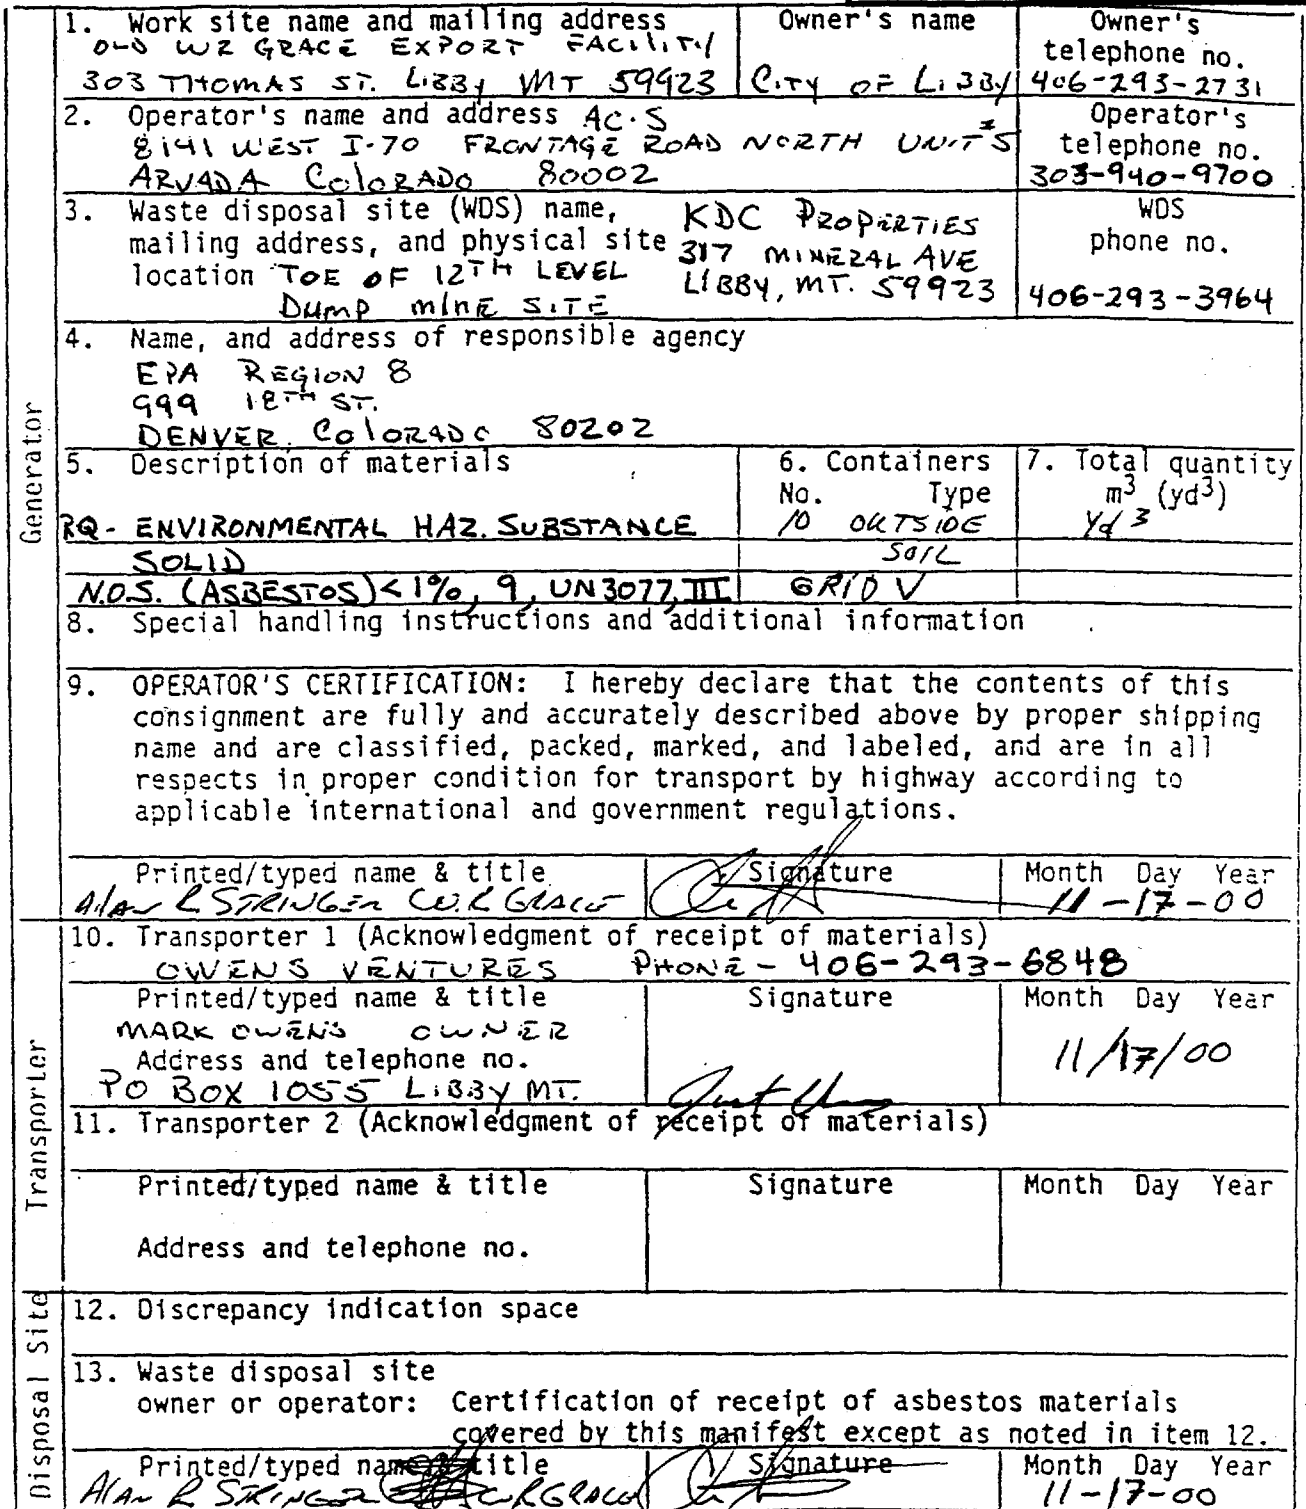 1. Work site name and mailing address
OLD WR GRACE EXPORT FACILITY
303 THOMAS ST. LIBBY MT 59923
Owner's name
CITY OF LIBBY
Owner's
telephone no.
406-293-2731
2. Operator's name and address AC·S
8141 WEST I-70 FRONTAGE ROAD NORTH UNIT #5
ARVADA COLORADO 80002
Operator's
telephone no.
303-940-9700
3. Waste disposal site (WDS) name,
mailing address, and physical site
location TOE OF 12TH LEVEL
DUMP MINE SITE
KDC PROPERTIES
317 MINERAL AVE
LIBBY, MT. 59923
WDS
phone no.
406-293-3964
4. Name, and address of responsible agency
EPA REGION 8
999 18TH ST.
DENVER COLORADO 80202
5. Description of materials
RQ - ENVIRONMENTAL HAZ. SUBSTANCE
SOLID
N.O.S. (ASBESTOS) < 1%, 9, UN3077, III
6. Containers
No. Type
10 OUTSIDE
SOIL
GRID V
7. Total quantity
m³ (yd³)
Yd³
8. Special handling instructions and additional information
9. OPERATOR'S CERTIFICATION: I hereby declare that the contents of this
consignment are fully and accurately described above by proper shipping
name and are classified, packed, marked, and labeled, and are in all
respects in proper condition for transport by highway according to
applicable international and government regulations.
Printed/typed name & title
Alan R STRINGER W.R GRACE
Signature
Month Day Year
11-17-00
10. Transporter 1 (Acknowledgment of receipt of materials)
OWENS VENTURES PHONE - 406-293-6848
Printed/typed name & title
MARK OWENS OWNER
Address and telephone no.
PO BOX 1055 LIBBY MT.
Signature
Month Day Year
11/17/00
11. Transporter 2 (Acknowledgment of receipt of materials)
Printed/typed name & title
Address and telephone no.
Signature
Month Day Year
12. Discrepancy indication space
13. Waste disposal site
owner or operator: Certification of receipt of asbestos materials
covered by this manifest except as noted in item 12.
Printed/typed name & title
Alan R STRINGER W R GRACE
Signature
Month Day Year
11-17-00
Generator
Transporter
Disposal Site